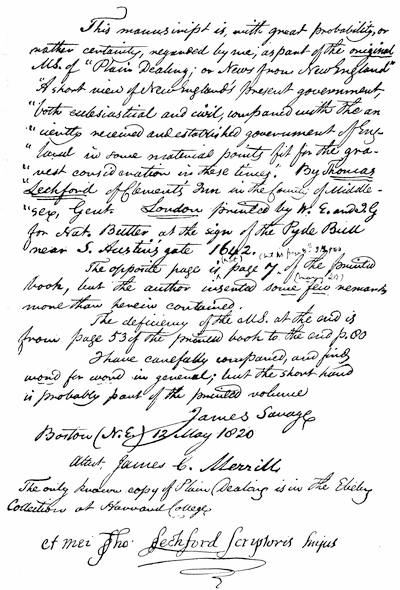 This manuscript is, with great probability, or
rather certainty, regarded by me, as part of the original
MS. of "Plain Dealing; or News from New England"
"A short view of New England's present government,
"both eclesiastical and civil, compared with the an
"ciently received and established government of Eng-
"land in some material points fit for the gra-
"vest consideration in these times. By Thomas
"Lechford of Clement's Inn in the County of Middle-
"sex, Gent. London printed by W. E. and I. G
for Nat. Butter at the sign of the Pyde Bull
near S. Austin's gate 1642.
The opposite page is page 7. of the printed
book, but the author inserted some few remarks
more than herein contained.
The deficiency of the MS. at the end is
from page 53 of the printed book to the end p. 80
I have carefully compared, and find
word for word in general; but the short hand
is probably part of the printed volume
James Savage
Boston (N.E.) 12 May 1820
Attest, James C. Merrill
The only known copy of Plain Dealing is in the Ebeling
Collection at Harvard College
et mei Tho. Lechford Scriptoris hujus